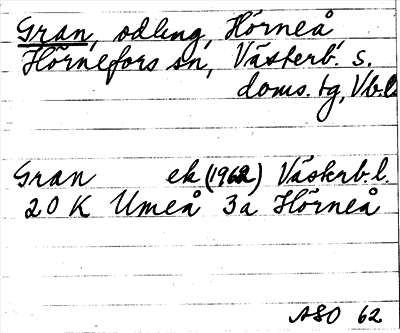 Gran, odling, Hörneå
Hörnefors sn, Västerb. s.
doms. tg, Vb.l.
Gran ek (1962) Västerb.l.
20 K Umeå 3a Hörneå
ASO 62